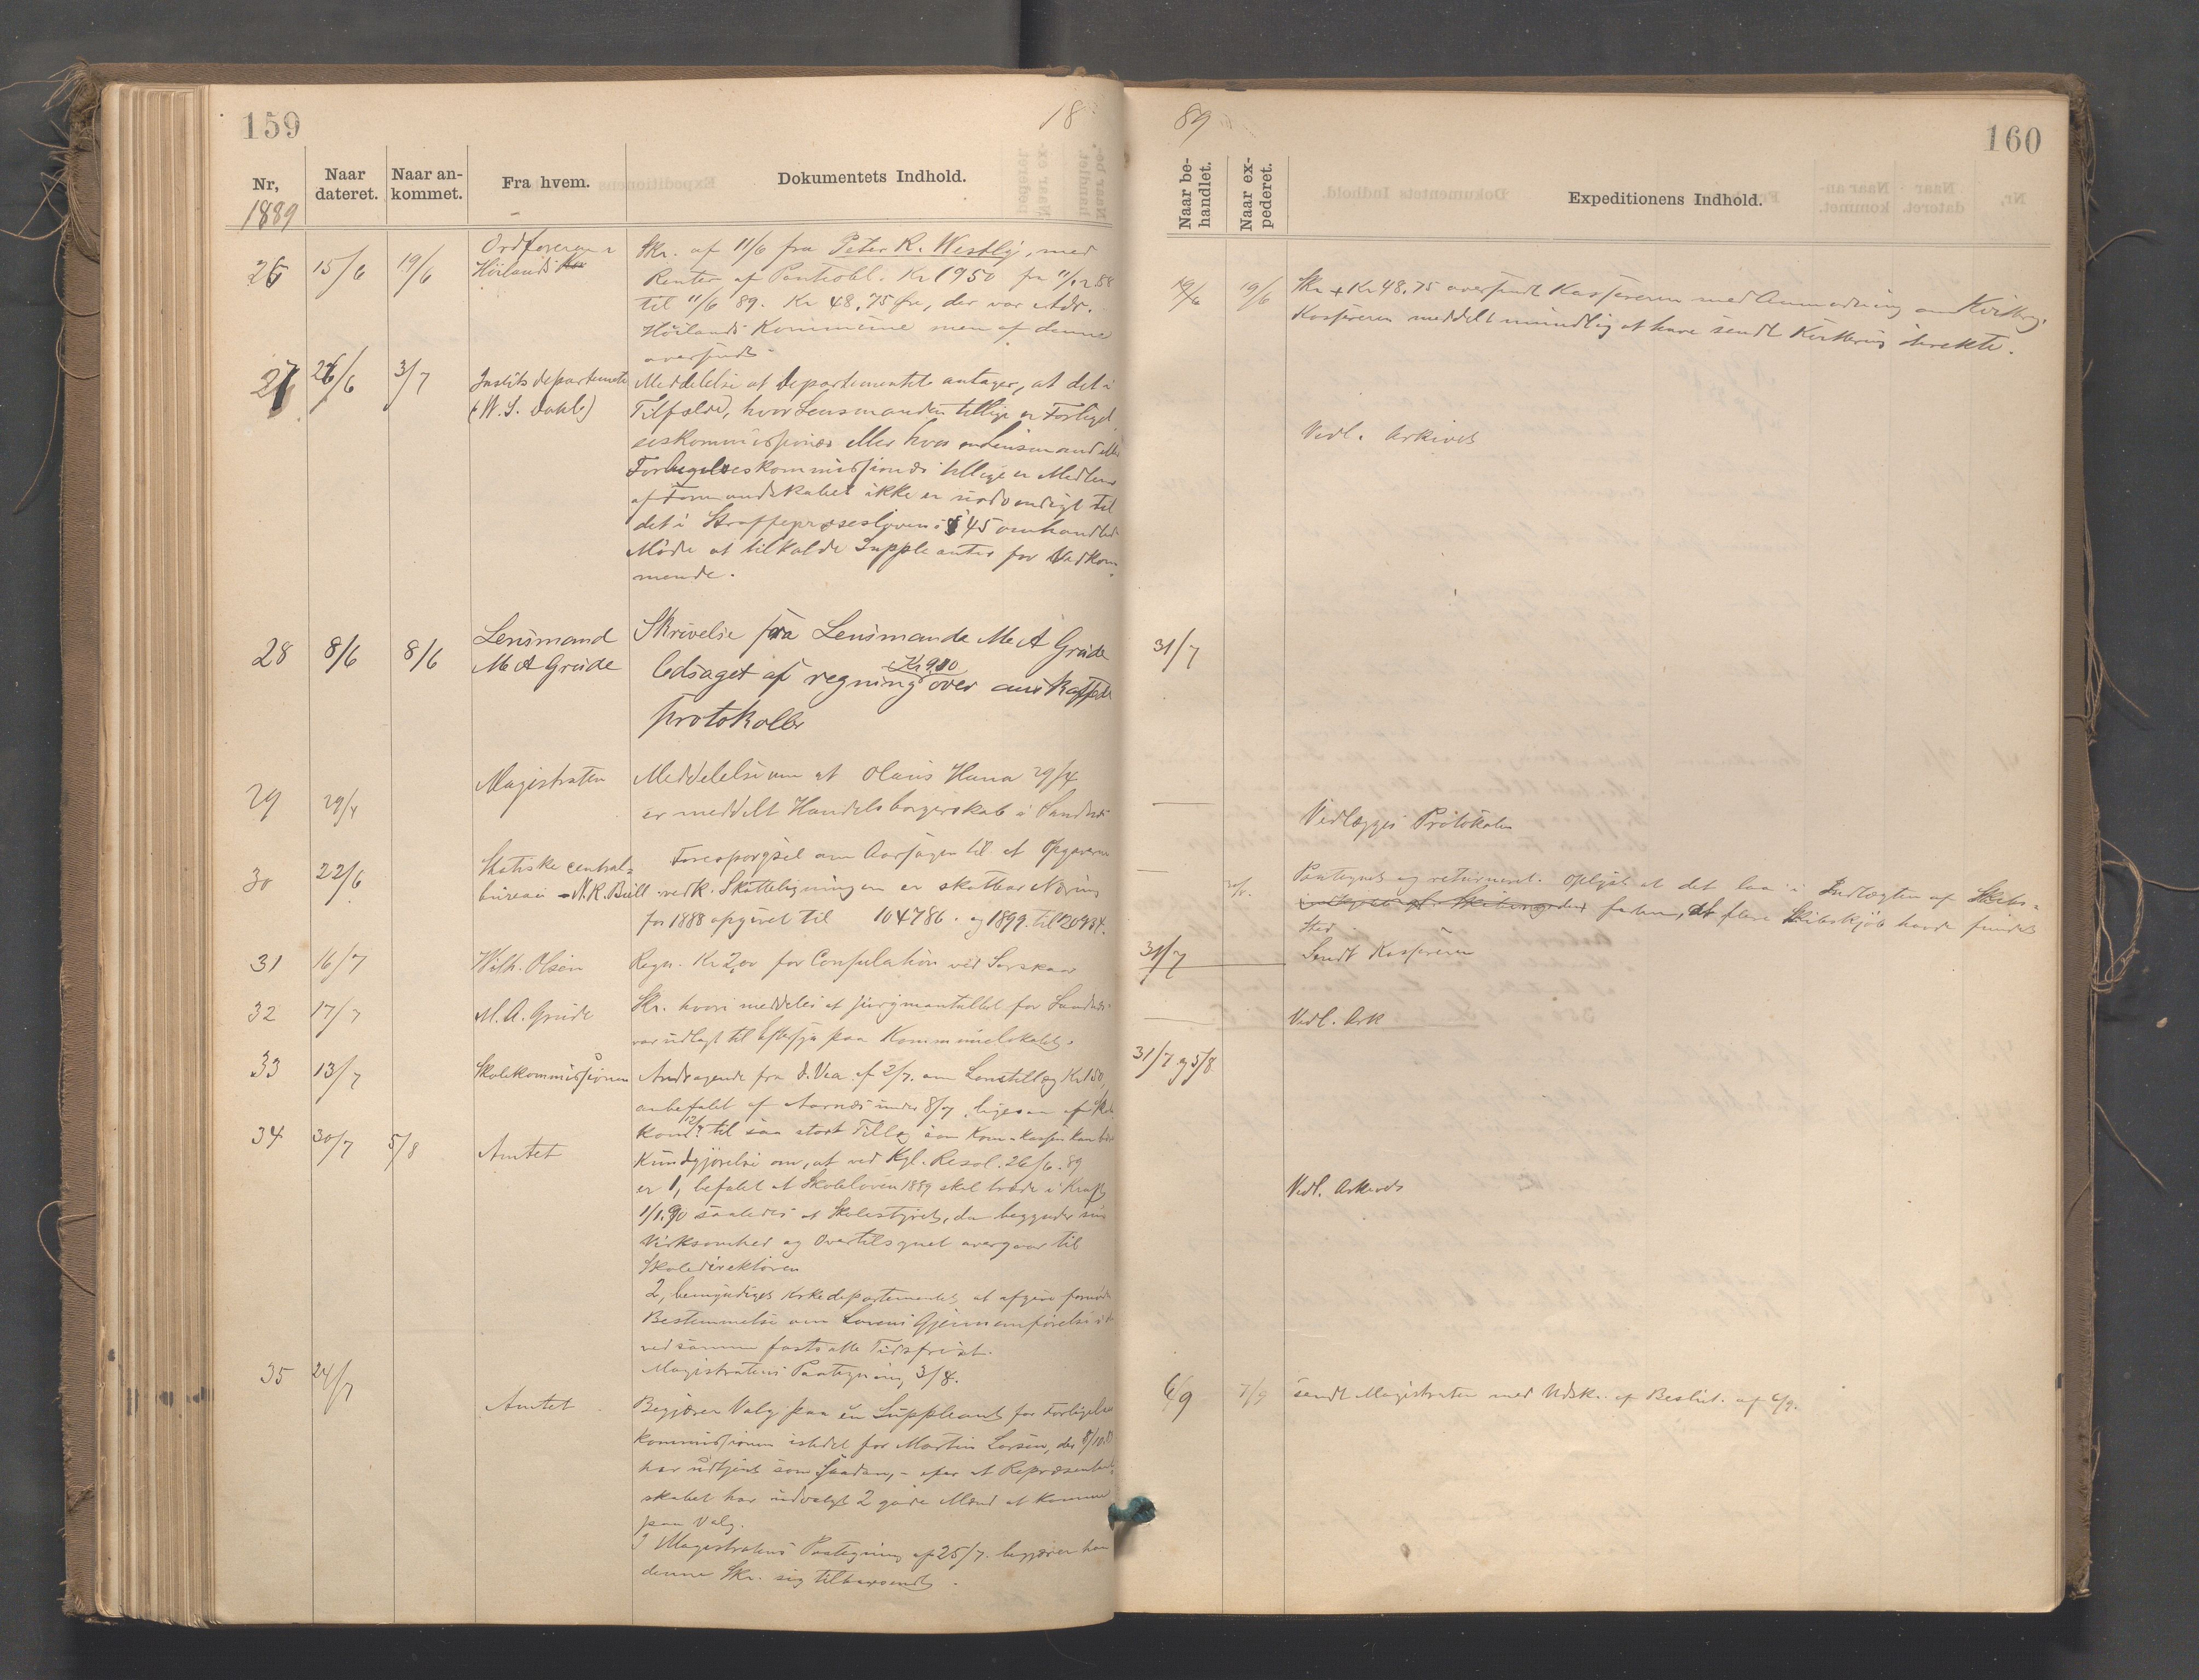 159
18
Nr,
Naar dateret.
Naar an-kommet.
Fra hvem.
Dokumentets Indhold.
1889
26 15/6 19/6 Ordføreren i
Høilands
Skr. af 11/6 fra Peter R. Westly, med
Renter af Pantobl. Kr 1950 fra 11/12 88
til 11/6 89. Kr 48,75 øre, der var Adr.
Høilands Kommune men af denne
oversendt
27 26/6 3/7 Justitsdepartementet
Meddelelse at Departementet antager, at det i
Tilfælde, hvor Lensmanden tillige er Forligel
seskommissionær eller hvor en Lensmand eller
Forligelseskommissionær tillige er Medlem
af Formandskabet ikke er nødvendigt til
det i Straffeproseslovens § 45 omhandlede
Møde at tilkalde Suppleanter for Vedkom
mende.
28 8/6 8/6 Lensmand
M A Grude
Skrivelse fra Lensmande M A Grude
ledsaget af regning Kr 9.10 over anskaffede
protokoller
29 29/4 Magistraten
Meddelelse om at Olaus Hana 29/4
er meddelt Handelsborgerskab i Sandnes
30 22/6 Statiske central=
bureau - N.R. Bull
Forespørgsel om Aarsagen til at Opgaverne
vedk. Skatteligningen er skattbar Næring
for 1888 opgivet til 104786. og
31 16/7 Wilh. Olsen
Regn. Kr 2,00 for Consulation ved
32 17/7 M. A. Grude
Skr. hvori meddeles at jurymantallet for Sandnes
var udlagt til Eftersyn paa Kommunelokalet.
33 13/7 Skolekommissionen
Andragende fra d. Vea af 2/7. om Lønstillæg Kr 150,
anbefalet af under 8/7 ligesom af Skole
kom 12/7 til saa stort Tillæg som Kom=kassen kan
34 30/7 5/8 Amtet
Kundgjørelse om, at ved Kgl. Resol. 26/6. 89
er 1, befalet at Skoleloven 1889 skal træde i Kraft
1/1.90 saaledes at Skolestyret, da begynder sin
Virksomhed og Overtilsynet overgaar til
Skoledirektøren
2, bemyndiges Kirkedepartementet at afgive fornøden
Bestemmelse om Lovens Gjennemførelse
ved samme fastsatte Tidsfrist.
Magistratens Paategning 3/8.
35 24/7 Amtet
Begjærer Valg paa en Suppleant for Forligelses
kommissionen istedet for Martin Larsen, der
har udtjent som saadan, - efter at Repræsentant
skabet har udvalgt 2 gode Mænd at komme
paa Valg.
I Magistratens Paategning af 25/7. begjærer han
denne Skr. sig tilbagesendt.
89
160
Naar be-handlet.
Naar ex-pederet.
Expeditionens Indhold.
19/6 19/6 Skr + Kr 48.75 oversendt Kassereren med Anmodning om Kvittering.
Kassereren meddelt mundtlig at have sendt Kvittering direkte.
Vedl. Arkivet
31/7
Vedlægges Protokolen
Paategnet og returneret. Oplyst at det laa i Indtægten af Skibs=
31/7 Sendt Kassereren
Vedl. Ark
31/7 og 5/8
Vedl. Arkivet
6/9 7/9 sendt Magistraten med Udskr. af Beslut. af 6/9.